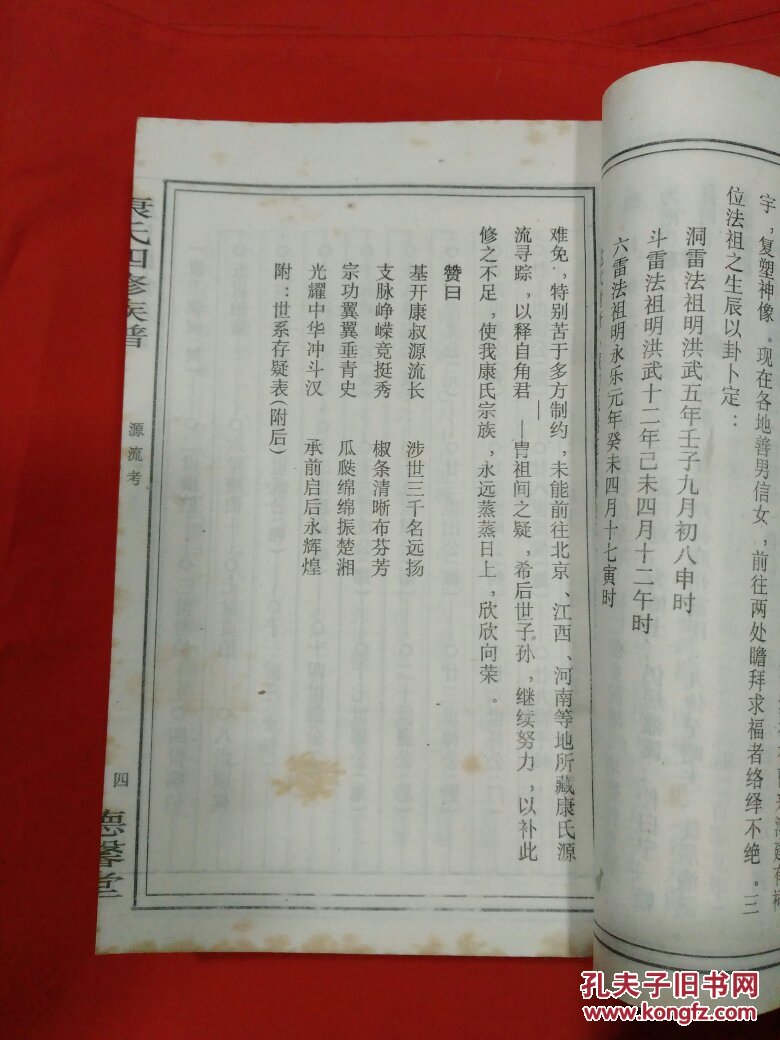 宇，复塑神像。现在各地善男信女，前往两处瞻拜求福者络绎不绝。三
位法祖之生辰以卦卜定：
洞雷法祖明洪武五年壬子九月初八申时
斗雷法祖明洪武十二年己未四月十二午时
六雷法祖明永乐元年癸未四月十七寅时
难免，特别苦于多方制约，未能前往北京、江西、河南等地所藏康氏源
流寻踪，以释自角君——胄祖间之疑，希后世子孙，继续努力，以补此
修之不足，使我康氏宗族，永远蒸蒸日上，欣欣向荣。
赞曰
基开康叔源流长　涉世三千名远扬
支脉峥嵘竞挺秀　椒条清晰布芬芳
宗功翼翼垂青史　瓜瓞绵绵振楚湘
光耀中华冲斗汉　承前启后永辉煌
附：世系存疑表（附后）
康氏四修族谱
源流考
四
德馨堂
孔夫子旧书网
www.kongfz.com